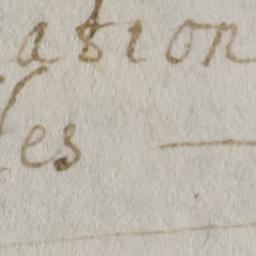 ation
les —